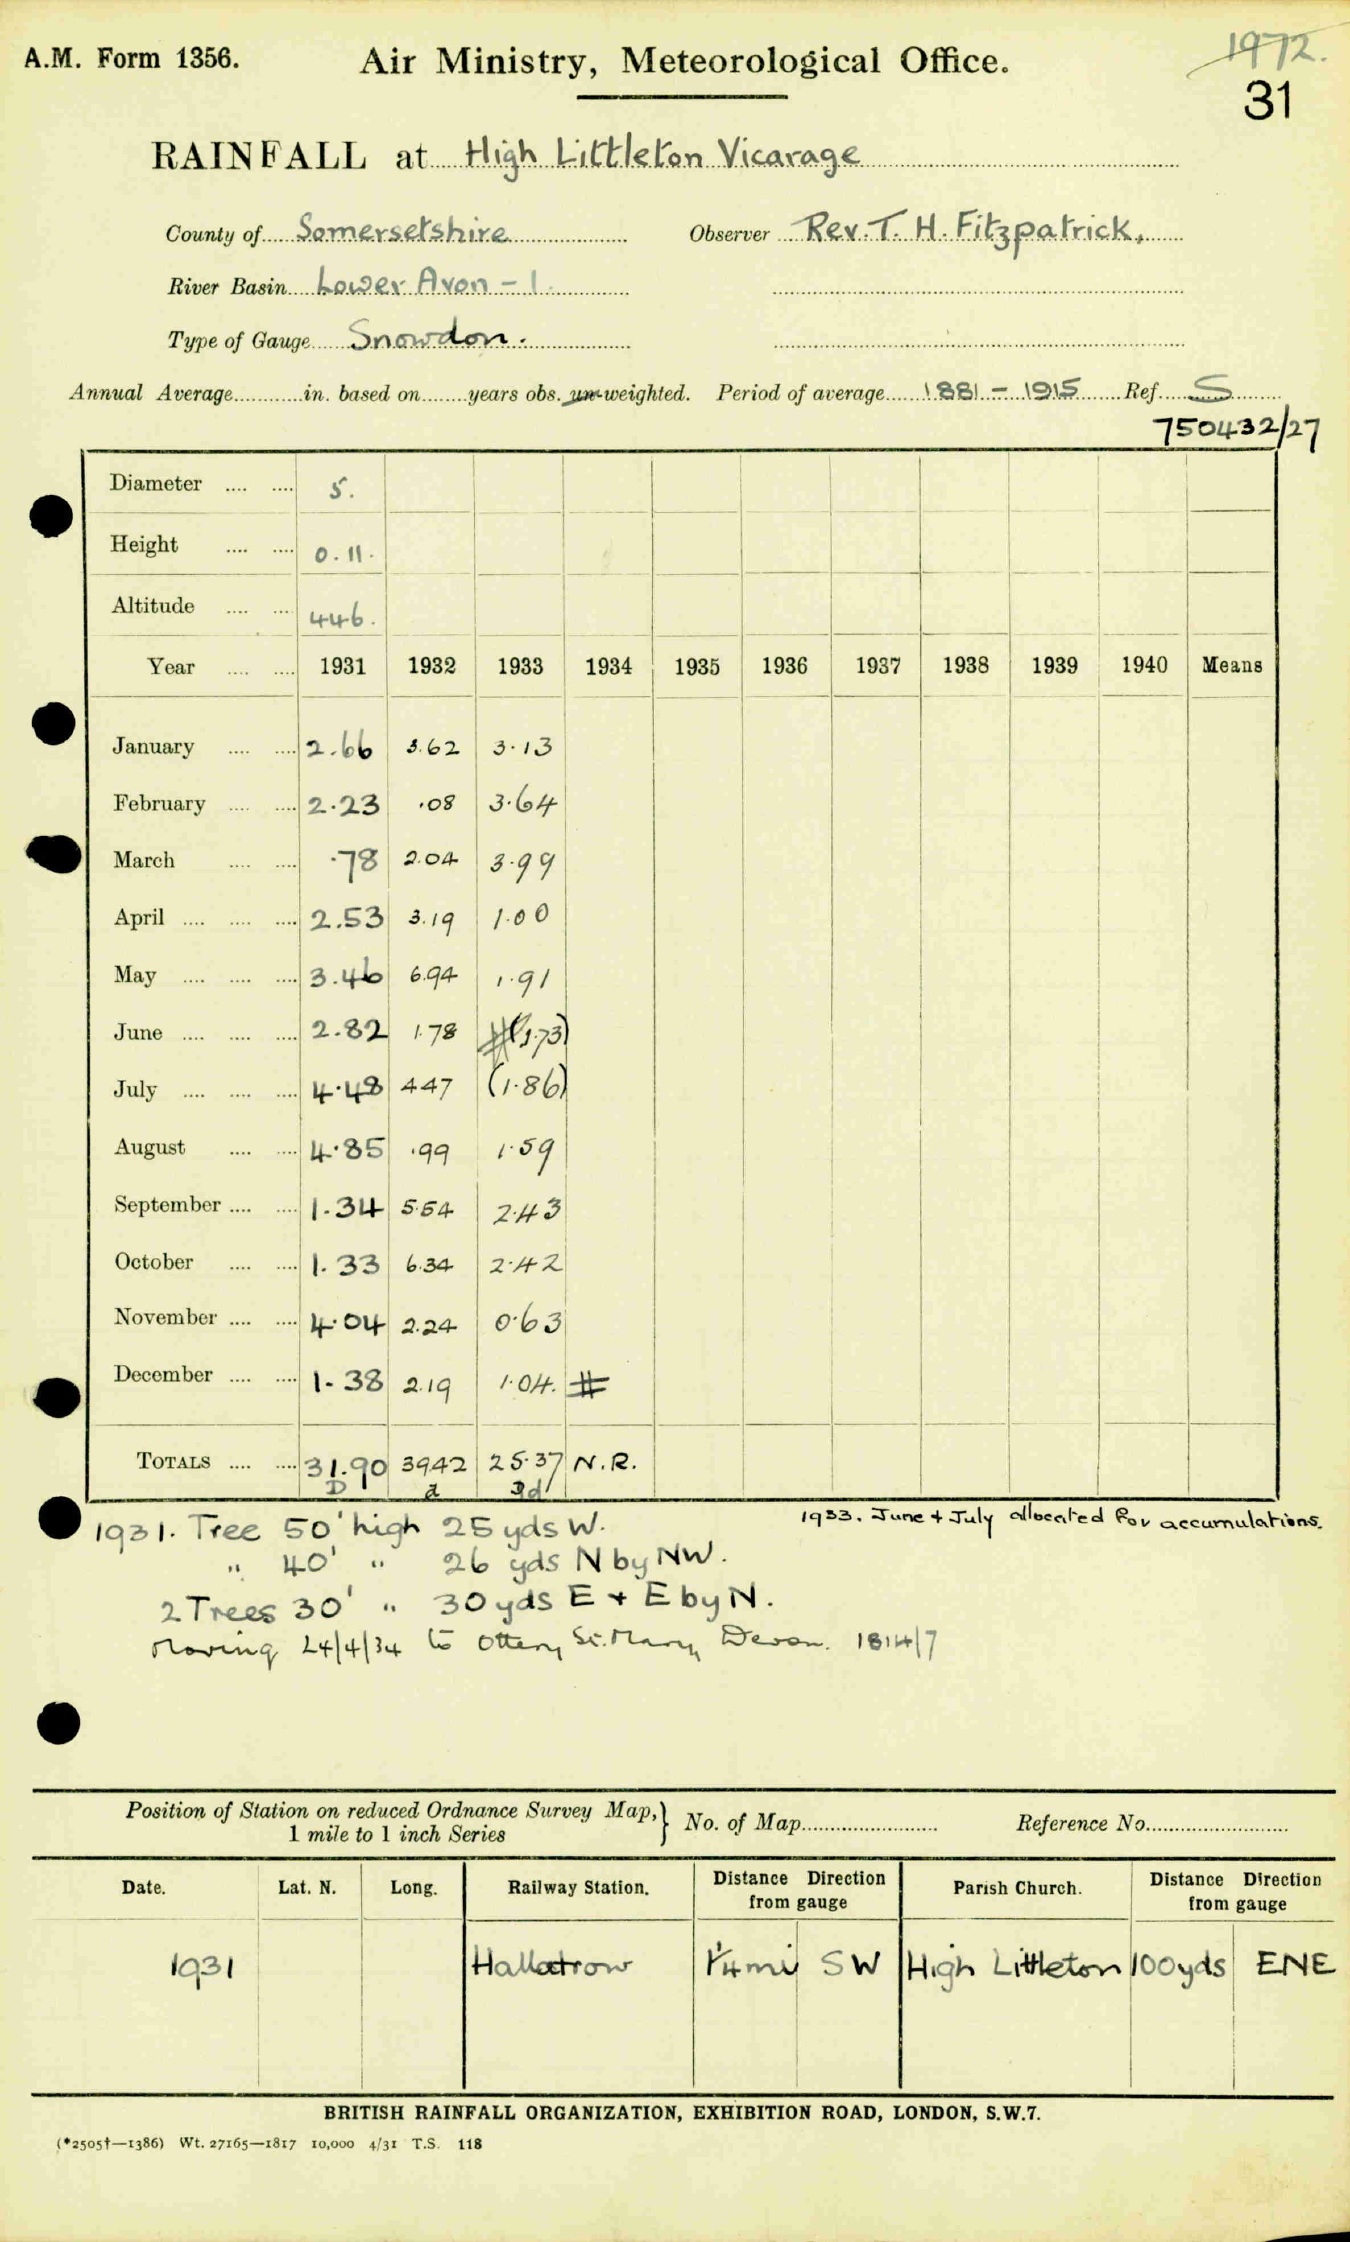 A.M. Form 1356. Air Ministry, Meteorological Office. 1972.
31
RAINFALL at High Littleton Vicarage
County of Somersetshire Observer Rev. T. H. Fitzpatrick.
River Basin Lower Avon - 1.
Type of Gauge Snowdon.
Annual Average............in. based on........years obs. un-weighted. Period of average 1881 - 1915 Ref. S
750432/27
Diameter .... .... 5.
Height .... .... 0.11.
Altitude .... .... 446.
Year .... .... 1931 1932 1933 1934 1935 1936 1937 1938 1939 1940 Means
January .... .... 2.66 3.62 3.13
February .... .... 2.23 .08 3.64
March .... .... .78 2.04 3.99
April .... .... .... 2.53 3.19 1.00
May .... .... .... 3.46 6.94 1.91
June .... .... .... 2.82 1.78 # (1.73)
July .... .... .... 4.48 4.47 (1.86)
August .... .... 4.85 .99 1.59
September .... .... 1.34 5.54 2.43
October .... .... 1.33 6.34 2.42
November .... .... 4.04 2.24 0.63
December .... .... 1.38 2.19 1.04. #
TOTALS .... .... 31.90 39.42 25.37 N.R.
D a d
1931. Tree 50' high 25 yds W. 1933. June + July allocated for accumulations.
" 40' " 26 yds N by NW.
2 Trees 30' " 30 yds E + E by N.
Moving 24/4/34 to Ottery St. Mary, Devon. 1814/7
Position of Station on reduced Ordnance Survey Map,} No. of Map........................ Reference No.........................
1 mile to 1 inch Series
Date. Lat. N. Long. Railway Station. Distance Direction from gauge Parish Church. Distance Direction from gauge
1931 Hallatrow 1/4 mi SW High Littleton 100 yds ENE
BRITISH RAINFALL ORGANIZATION, EXHIBITION ROAD, LONDON, S.W.7.
(*2505†—1386) Wt. 27165—1817 10,000 4/31 T.S. 118